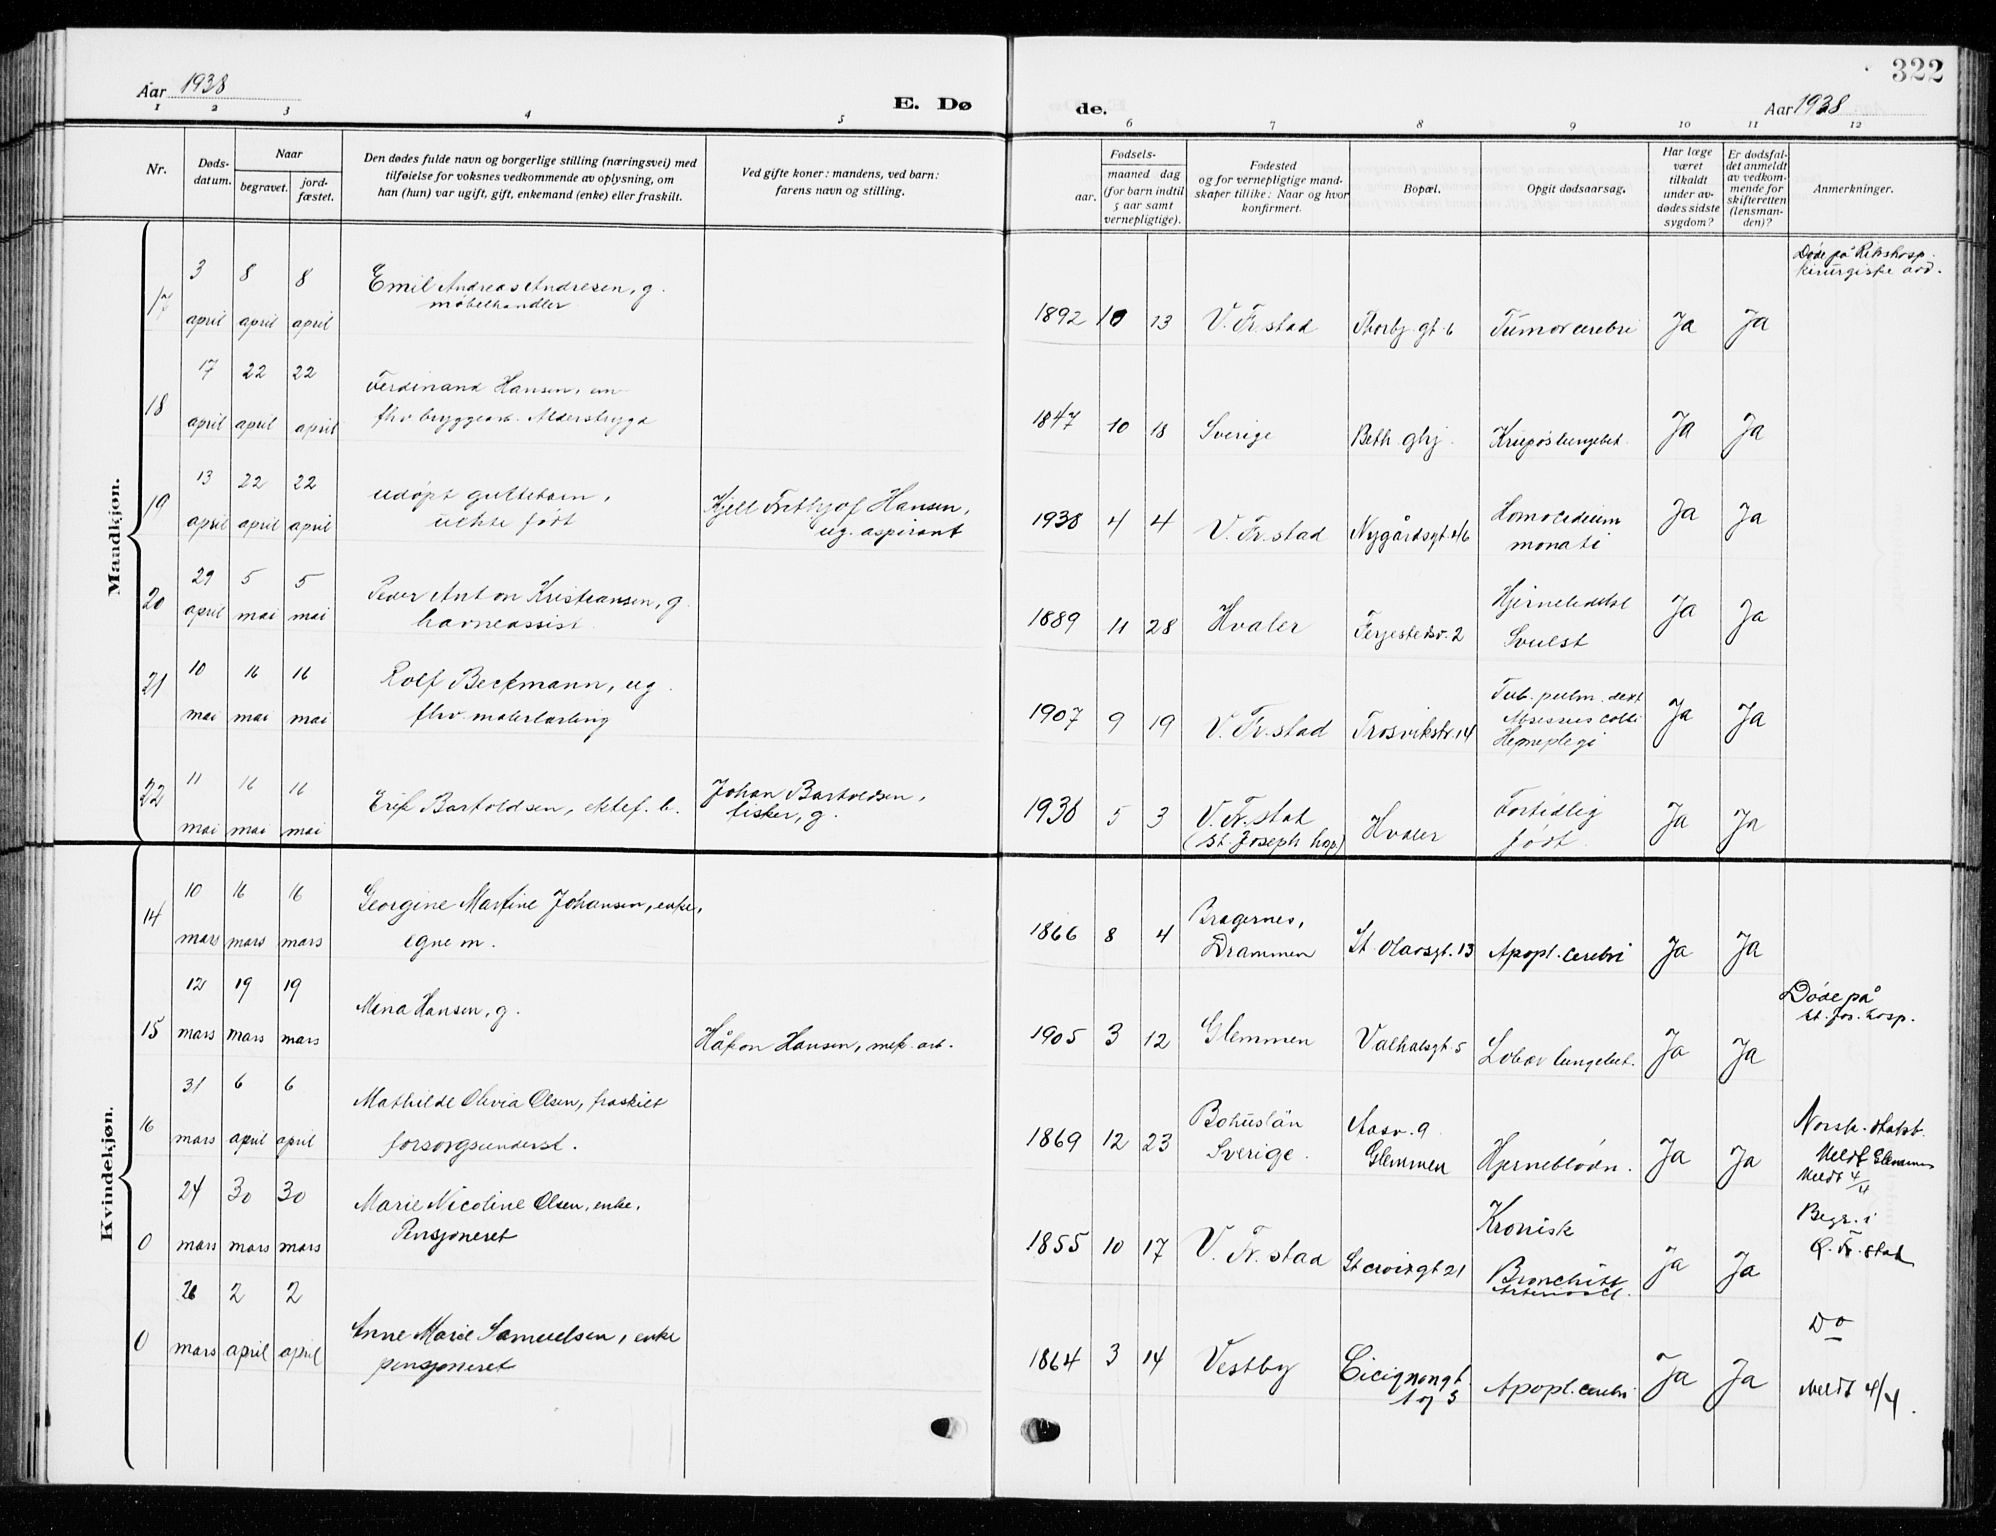 322
Aar 1938
E. Dø
de.
Aar 1938
1 2 3 4 5 6 7 8 9 10 11 12
Nr.
Døds-
datum.
Naar
begravet.
jord-
fæstet.
Den dødes fulde navn og borgerlige stilling (næringsvei) med
tilføielse for voksnes vedkommende av oplysning, om
han (hun) var ugift, gift, enkemand (enke) eller fraskilt.
Ved gifte koner: mandens, ved barn:
farens navn og stilling.
Fødsels-
aar.
maaned dag
(for barn indtil
5 aar samt
vernepligtige).
Fødested
og for vernepligtige mand-
skaper tillike: Naar og hvor
konfirmert.
Bopæl.
Opgit dødsaarsag.
Har læge
været
tilkaldt
under av-
dødes sidste
sygdom?
Er dødsfal-
det anmeldt
av vedkom-
mende for
skifteretten
(lensman-
den)?
Anmerkninger.
Maadkjøn.
17
3 april
8 april
8 april
Emil Andreas Andresen, g.
møbelhandler
1892 10 13
V. Fr.stad
Thorbj.gt. 6
Tumor cerebri
Ja
Ja
Døde på Rikshosp.
kirurgiske avd.
18
17 april
22 april
22 april
Ferdinand Hansen, em
fhv. bryggearb. Alderstrygd
1847 10 18
Sverige
Beth. ghj.
Krupøs lungebet.
Ja
Ja
19
13 april
22 april
22 april
udøpt guttebarn,
uekte født
Kjell Frithjof Hansen,
ug. aspirant
1938 4 4
V. Fr.stad
Nygårdsgt.
Ja
Ja
20
29 april
5 mai
5 mai
Peder Anton Kristiansen, g.
havneassist.
1889 11 28
Hvaler
Ferjestedsv. 2
Svulst
Ja
Ja
21
10 mai
16 mai
16 mai
Rolf Beckmann, ug.
fhv. malerlærling
1907 9 19
V. Fr.stad
Trosvikstr. 14
Tub. pulm. dext
Absessus colli
Hemiplegi
Ja
Ja
22
11 mai
16 mai
16 mai
Erik Bartoldsen, ektef. b.
Johan Bartoldsen,
fisker, g.
1938 5 3
V. Fr.stad
(St. Joseph hosp.)
Hvaler
Fortidlig
født.
Ja
Ja
Kvindekjøn.
14
10 mars
16 mars
16 mars
Georgine Martine Johansen, enke,
egne m.
1866 8 4
Bragernes,
Drammen
St. Olavsgt. 13
Apopl. cerebri
Ja
Ja
15
12 mars
19 mars
19 mars
Mina Hansen, g.
Håkon Hansen, mek. arb.
1905 3 12
Glemmen
Valhalsgt. 5
Lobær lungebet.
Ja
Ja
Døde på
St. Jos. hosp.
16
31 mars
6 april
6 april
Mathilde Olivia Olsen, fraskilt
forsorgsunderst.
1869 12 23
Bohuslän
Sverige.
Aasv. 9
Glemmen
Hjerneblødn.
Ja
Ja
Norsk. statsb.
Meldt Glemmen
Meldt 4/4
0
24 mars
30 mars
30 mars
Marie Nicoline Olsen, enke,
Pensjoneret
1855 10 17
V. Fr.stad
St. croixgt 21
Kronisk
Bronchitt
Arterioscl.
Ja
Ja
Begr. i
Ø. Fr.stad
0
26 mars
2 april
2 april
Anne Marie Samuelsen, enke
pensjoneret
1864 3 14
Vestby
Cicignongt.
Apopl. cerebri
Ja
Ja
Do
Meldt 4/4.